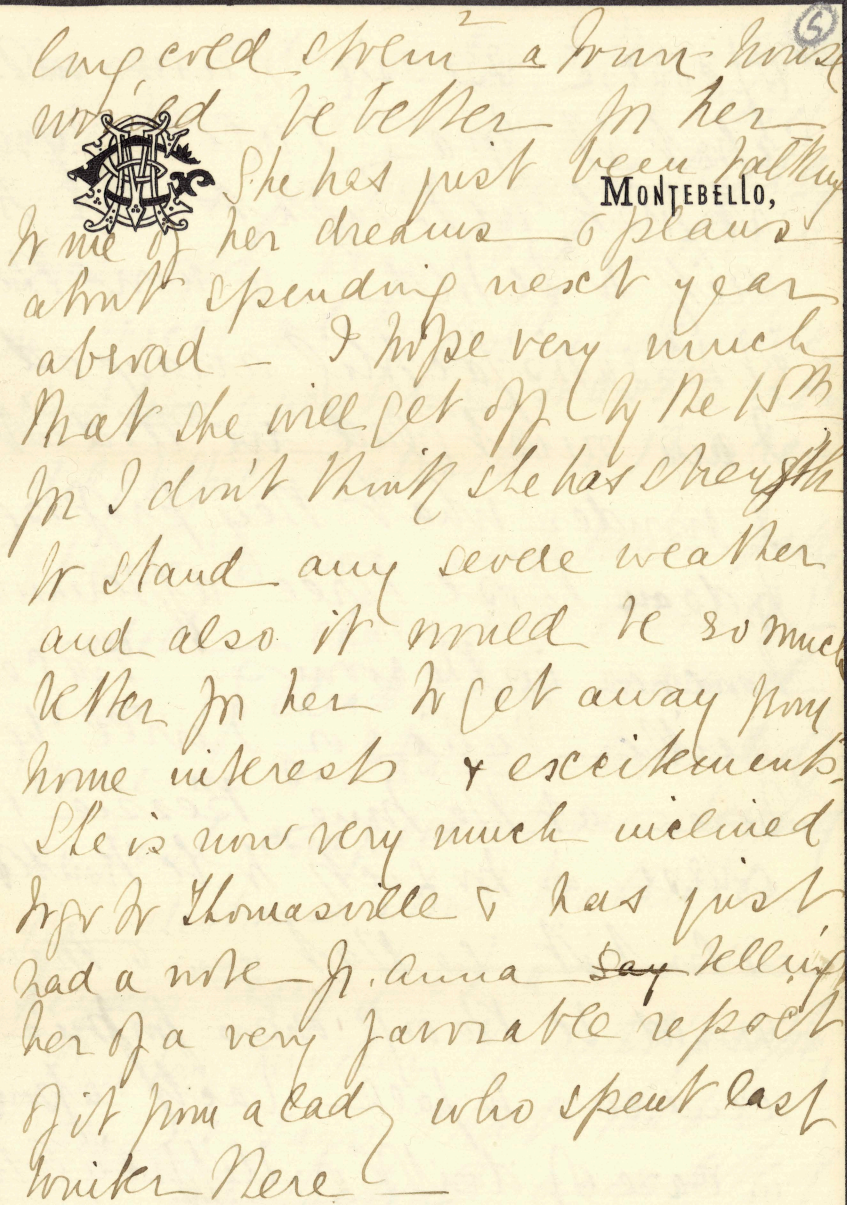 5
long, cold storm a town house
would be better for her
She has just been talking
MONTEBELLO,
to me of her dreams & plans
about spending next year
abroad – I hope very much
that she will get off by the 15th
for I don't think she has strength
to stand any severe weather
and also it would be so much
better for her to get away from
home interests & excitements.
She is now very much inclined
to go to Thomasville & has just
had a note fr. Anna say telling
her of a very favorable report
of it from a lady who spent last
winter there —